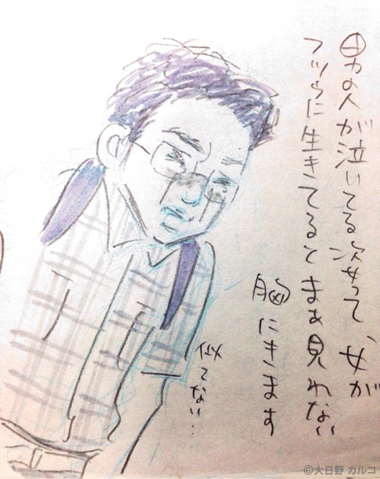 男の人が泣いてる姿って、女が
フツーに生きてるとまぁ見れない
胸にきます
似てない…
©大日野 カルコ